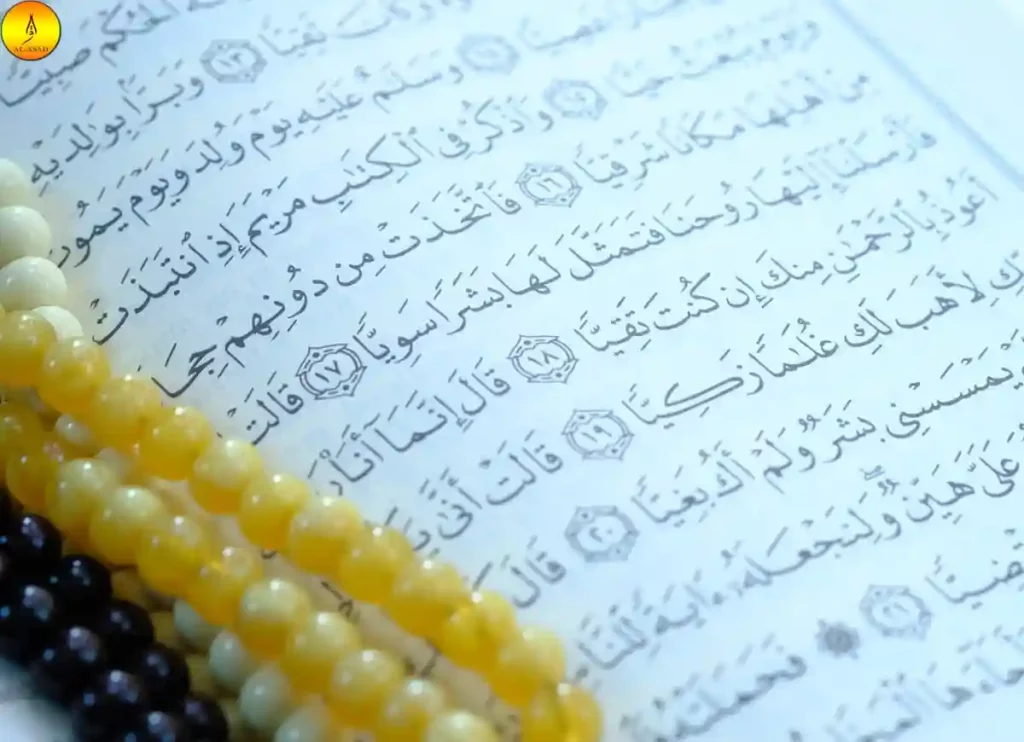 ٱلْحُكْمَ صَبِيًّا
تَقِيًّا ١٣ وَبَرًّۢا بِوَٰلِدَيْهِ
وَسَلَـٰمٌ عَلَيْهِ يَوْمَ وُلِدَ وَيَوْمَ يَمُوتُ
وَيَوْمَ يُبْعَثُ حَيًّا ١٥ وَٱذْكُرْ فِى ٱلْكِتَـٰبِ مَرْيَمَ إِذِ ٱنتَبَذَتْ
مِنْ أَهْلِهَا مَكَانًا شَرْقِيًّا ١٦ فَٱتَّخَذَتْ مِن دُونِهِمْ حِجَا
فَأَرْسَلْنَآ إِلَيْهَا رُوحَنَا فَتَمَثَّلَ لَهَا بَشَرًا سَوِيًّا ١٧ قَالَتْ
أَعُوذُ بِٱلرَّحْمَـٰنِ مِنكَ إِن كُنتَ تَقِيًّا ١٨ قَالَ إِنَّمَآ أَنَا۠
لِأَهَبَ لَكِ غُلَـٰمًا زَكِيًّا ١٩ قَالَتْ أَنَّىٰ
يَمْسَسْنِى بَشَرٌ وَلَمْ أَكُ بَغِيًّا ٢٠ قَالَ
عَلَىَّ هَيِّنٌ ۖ وَلِنَجْعَلَهُۥٓ ءَايَةً لِّلنَّا
٢١ ۞ فَحَمَلَتْهُ